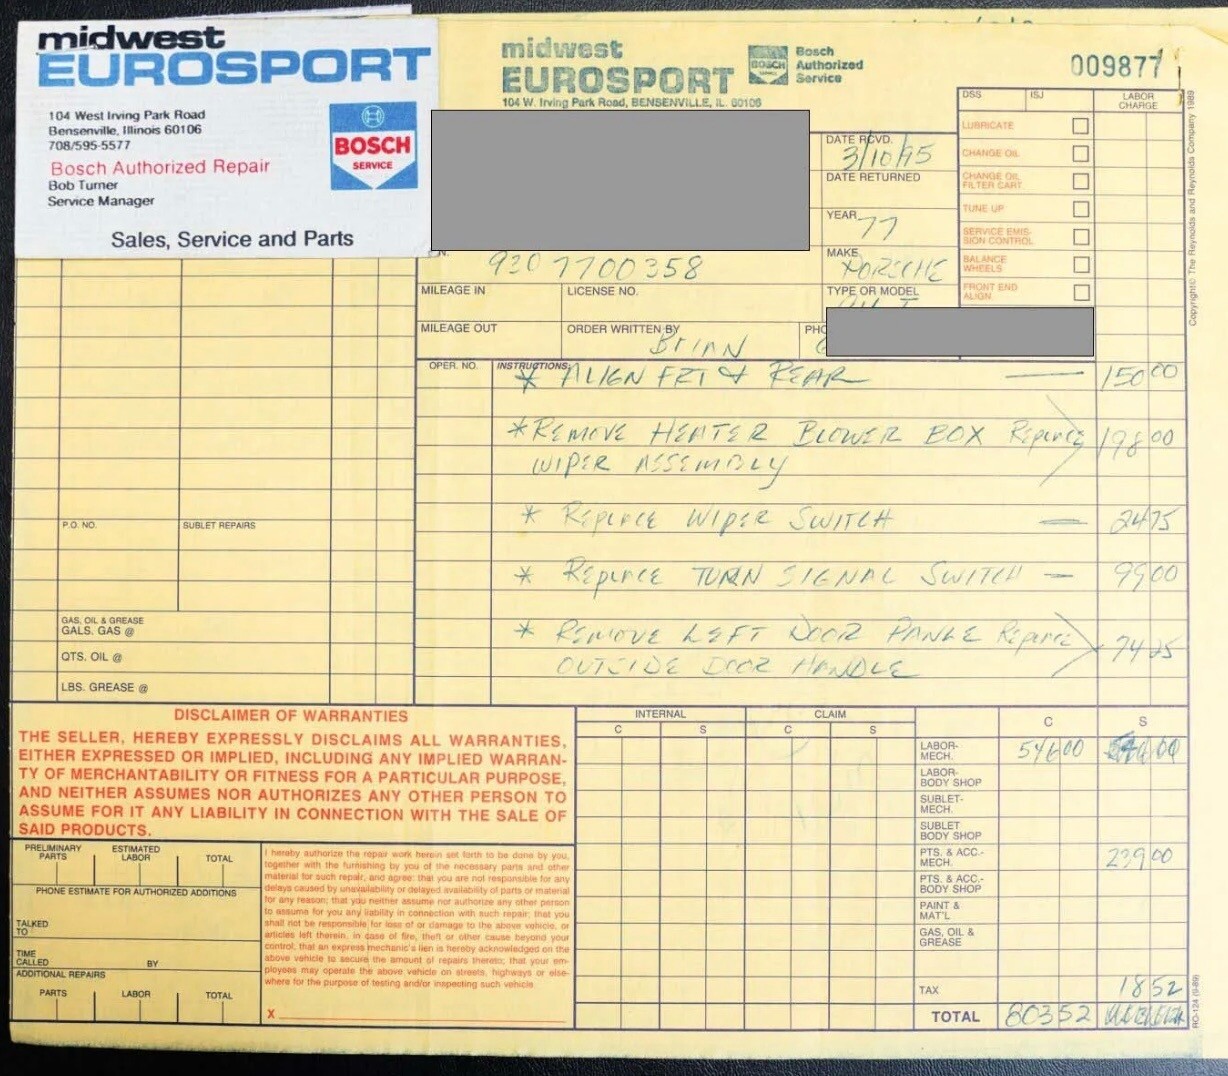 midwest
EUROSPORT
104 West Irving Park Road
Bensenville, Illinois 60106
708/595-5577
Bosch Authorized Repair
Bob Turner
Service Manager
BOSCH
SERVICE
Sales, Service and Parts
midwest
EUROSPORT
BOSCH
SERVICE
Bosch
Authorized
Service
104 W. Irving Park Road, BENSENVILLE, IL. 60106
009877
DSS ISJ LABOR CHARGE
LUBRICATE
CHANGE OIL
CHANGE OIL FILTER CART
TUNE UP
SERVICE EMIS-
SION CONTROL
BALANCE WHEELS
FRONT END ALIGN
DATE RCVD.
3/10/95
DATE RETURNED
YEAR 77
MAKE
PORSCHE
TYPE OR MODEL
9307700358
MILEAGE IN LICENSE NO.
MILEAGE OUT ORDER WRITTEN BY
BRIAN
OPER. NO. INSTRUCTIONS:
* ALIGN FRT & REAR — 150 00
* REMOVE HEATER BLOWER BOX Replace 198 00
WIPER ASSEMBLY
* REPLACE WIPER SWITCH — 24 75
* REPLACE TURN SIGNAL SWITCH — 99 00
* REMOVE LEFT DOOR PANLE Replace 74 25
OUTSIDE DOOR HANDLE
P.O. NO. SUBLET REPAIRS
GAS, OIL & GREASE
GALS. GAS @
QTS. OIL @
LBS. GREASE @
DISCLAIMER OF WARRANTIES
THE SELLER, HEREBY EXPRESSLY DISCLAIMS ALL WARRANTIES,
EITHER EXPRESSED OR IMPLIED, INCLUDING ANY IMPLIED WARRAN-
TY OF MERCHANTABILITY OR FITNESS FOR A PARTICULAR PURPOSE,
AND NEITHER ASSUMES NOR AUTHORIZES ANY OTHER PERSON TO
ASSUME FOR IT ANY LIABILITY IN CONNECTION WITH THE SALE OF
SAID PRODUCTS.
PRELIMINARY PARTS ESTIMATED LABOR TOTAL
PHONE ESTIMATE FOR AUTHORIZED ADDITIONS
TALKED TO
TIME CALLED BY
ADDITIONAL REPAIRS
PARTS LABOR TOTAL
I hereby authorize the repair work herein set forth to be done by you,
together with the furnishing by you of the necessary parts and other
material for such repair, and agree: that you are not responsible for any
delays caused by unavailability or delayed availability of parts or material
for any reason; that you neither assume nor authorize any other person
to assume for you any liability in connection with such repair; that you
shall not be responsible for loss of or damage to the above vehicle, or
articles left therein, in case of fire, theft or other cause beyond your
control; that an express mechanic's lien is hereby acknowledged on the
above vehicle to secure the amount of repairs thereto; that your em-
ployees may operate the above vehicle on streets, highways or else-
where for the purpose of testing and/or inspecting such vehicle
X
INTERNAL CLAIM
C S C S C S
LABOR-
MECH. 546 00
LABOR-
BODY SHOP
SUBLET-
MECH.
SUBLET
BODY SHOP
PTS. & ACC.-
MECH. 239 00
PTS. & ACC.-
BODY SHOP
PAINT &
MAT'L
GAS, OIL &
GREASE
TAX 18 52
TOTAL 803 52
Copyright© The Reynolds and Reynolds Company 1989
RO-124 (9-89)